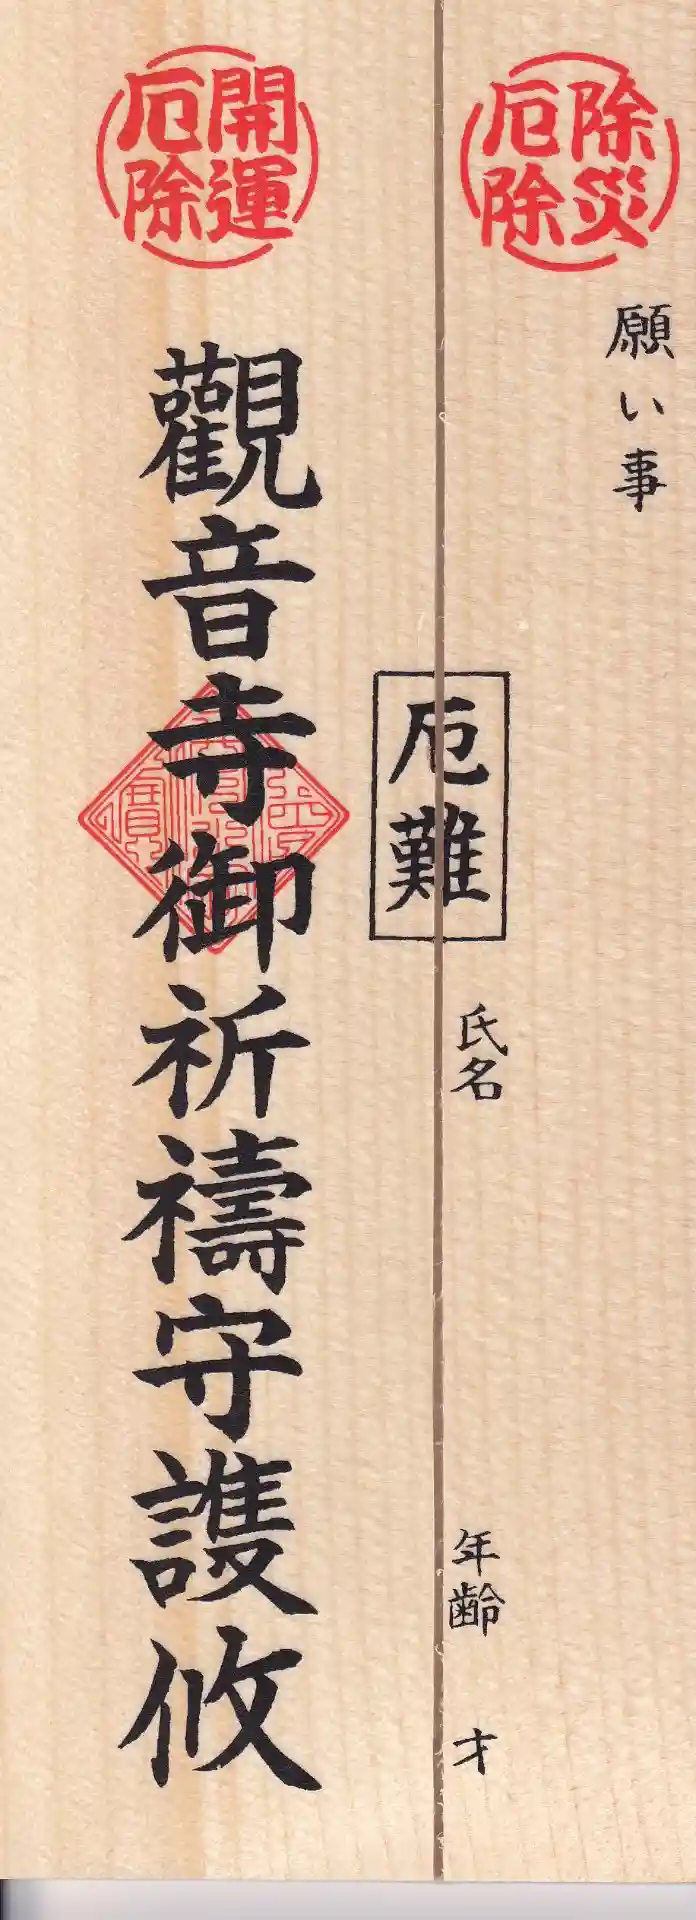 除災
厄除
願い事
厄難
氏名
年齢　才
開運
厄除
觀音寺御祈禱守護攸